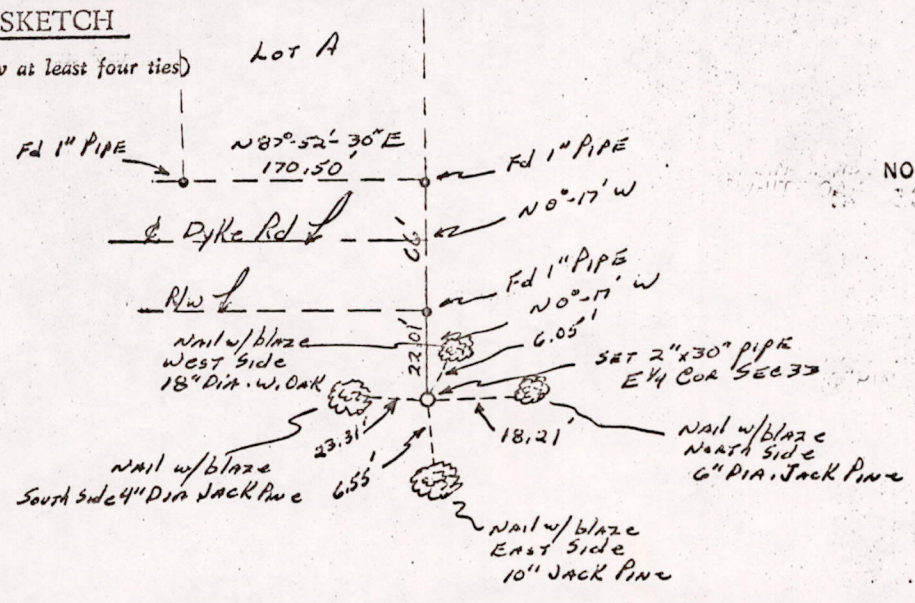 SKETCH
w at least four ties)
LOT A
Fd 1" PIPE
N 87°-52'-30" E
170.50'
Fd 1" PIPE
NO
N 0°-17' W
℄ Dyke Rd
66'
Fd 1" PIPE
N 0°-17' W
R/W
6.05'
22.01'
Nail w/blaze
West Side
18" Dia. W. Oak
SET 2"x30" PIPE
E 1/4 COR SEC 33
23.31'
18.21'
Nail w/blaze
North Side
6" DIA. JACK Pine
Nail w/blaze
South Side 4" DIA JACK Pine
6.55'
Nail w/blaze
East Side
10" JACK Pine